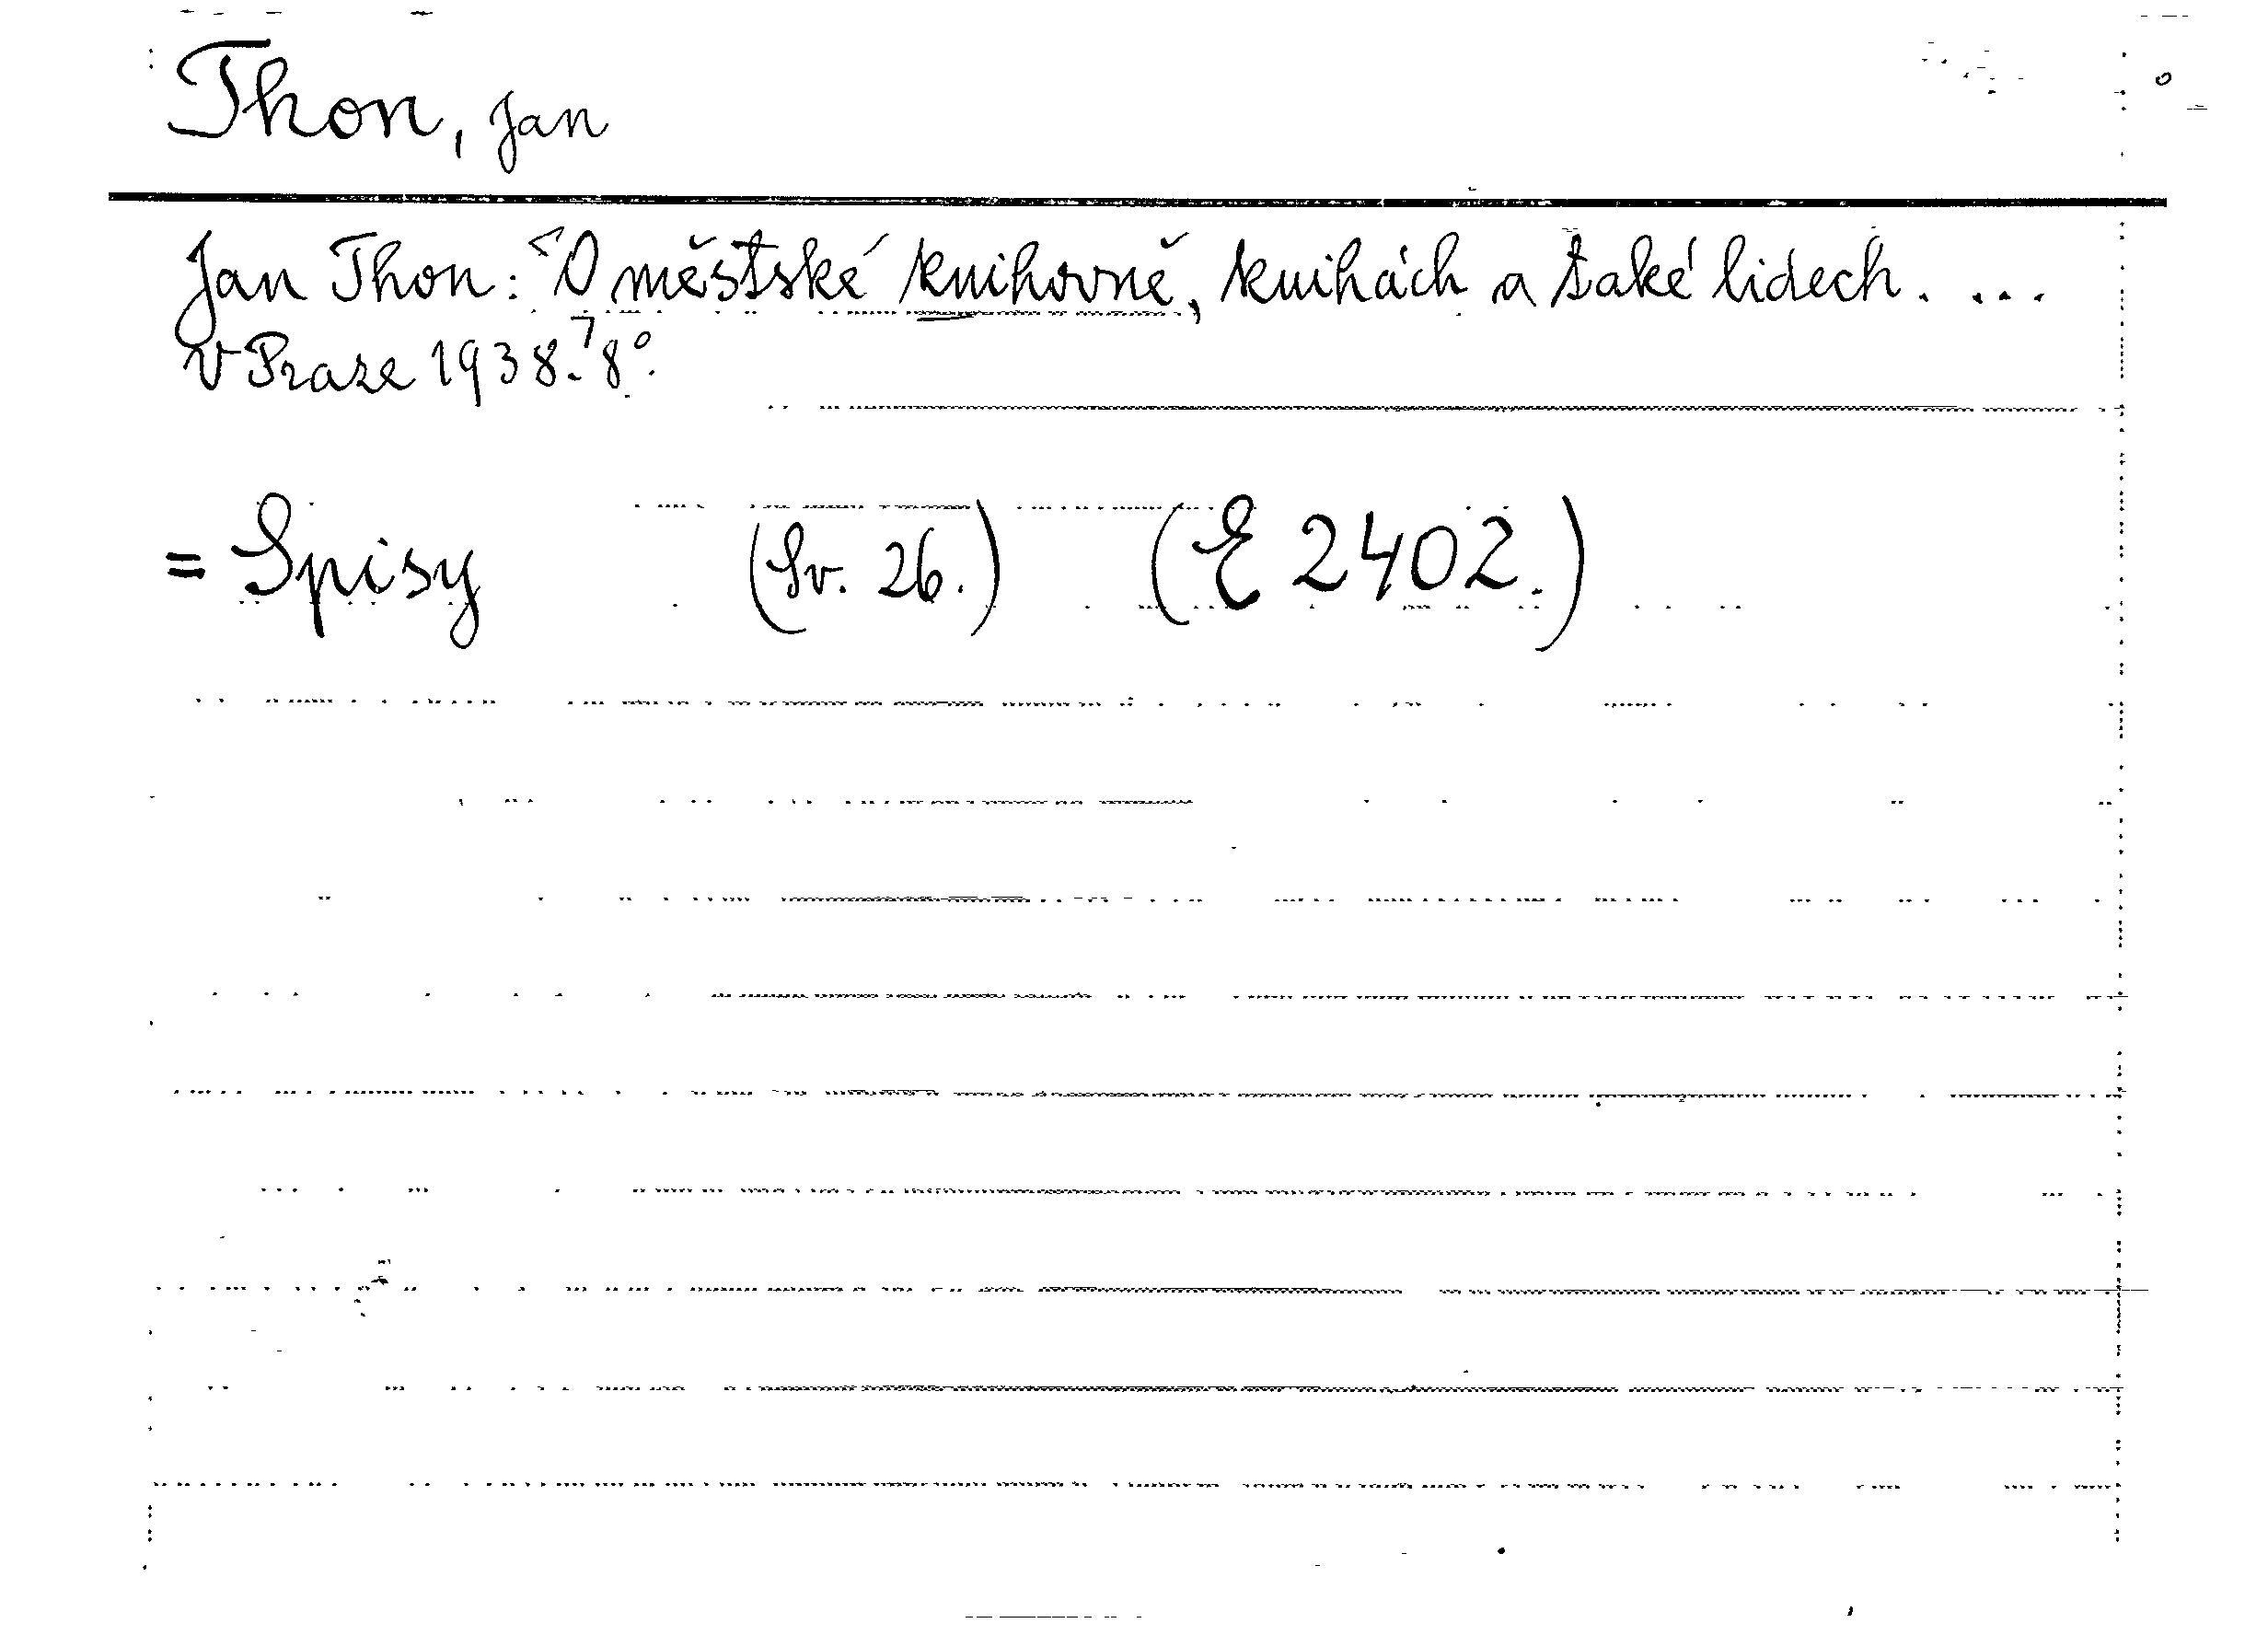 Thon, Jan
Jan Thon: O městské knihovně, knihách a také lidech. ...
V Praze 1938. 8°.
= Spisy (Sv. 26.) (E 2402.)